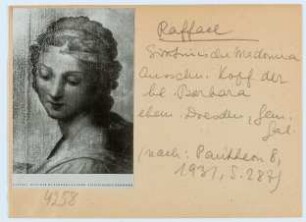 Raffael
Sixtinische Madonna
Ausschn. Kopf der
hl. Barbara
ehem. Dresden, Gem.
Gal.
(nach: Pantheon 8,
1931, S. 287)
4258